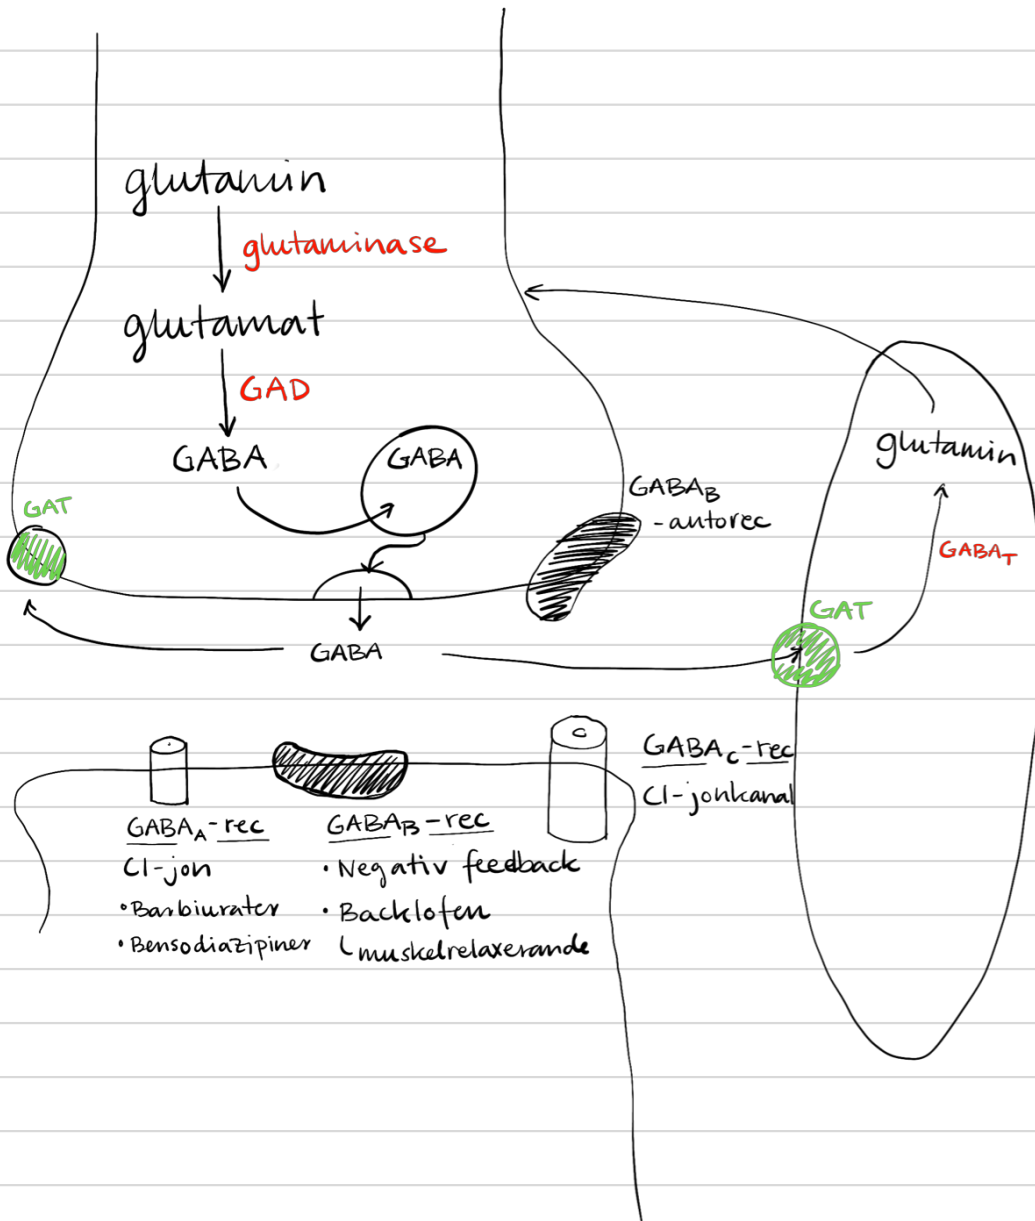 glutamin
glutaminase
glutamat
GAD
GABA
GABA
GAT
GABA_B
-autorec
GABA
glutamin
GABA_T
GAT
GABA_A-rec
Cl-jon
•Barbiurater
•Bensodiazipiner
GABA_B-rec
•Negativ feedback
•Backlofen
muskelrelaxerande
C
GABA_C-rec
Cl-jonkanal